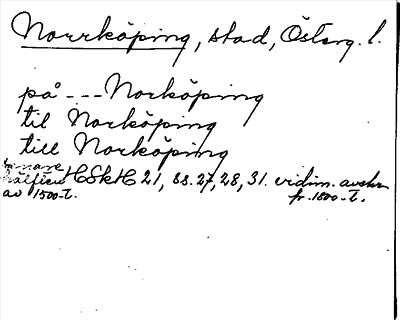 Norrköping, stad, Österg. l.
på --- Norköping
til Norköping
till Norköping
senare
hälften HSkH 21, ss. 27, 28, 31. vidim. avskr.
av 1500-t. fr. 1800-t.